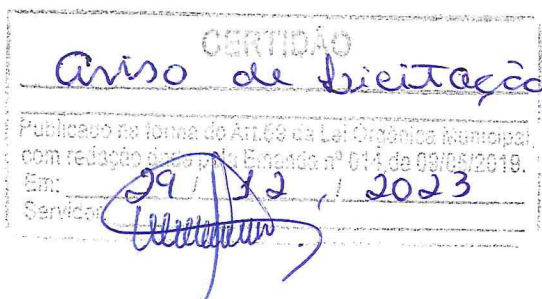 CERTIDÃO
Aviso de Licitação
Publicado na forma do Art.69 da Lei Orgânica Municipal,
com redação dada pela Emenda nº 014 de 09/05/2019.
Em: 29 / 12 / 2023
Servidor